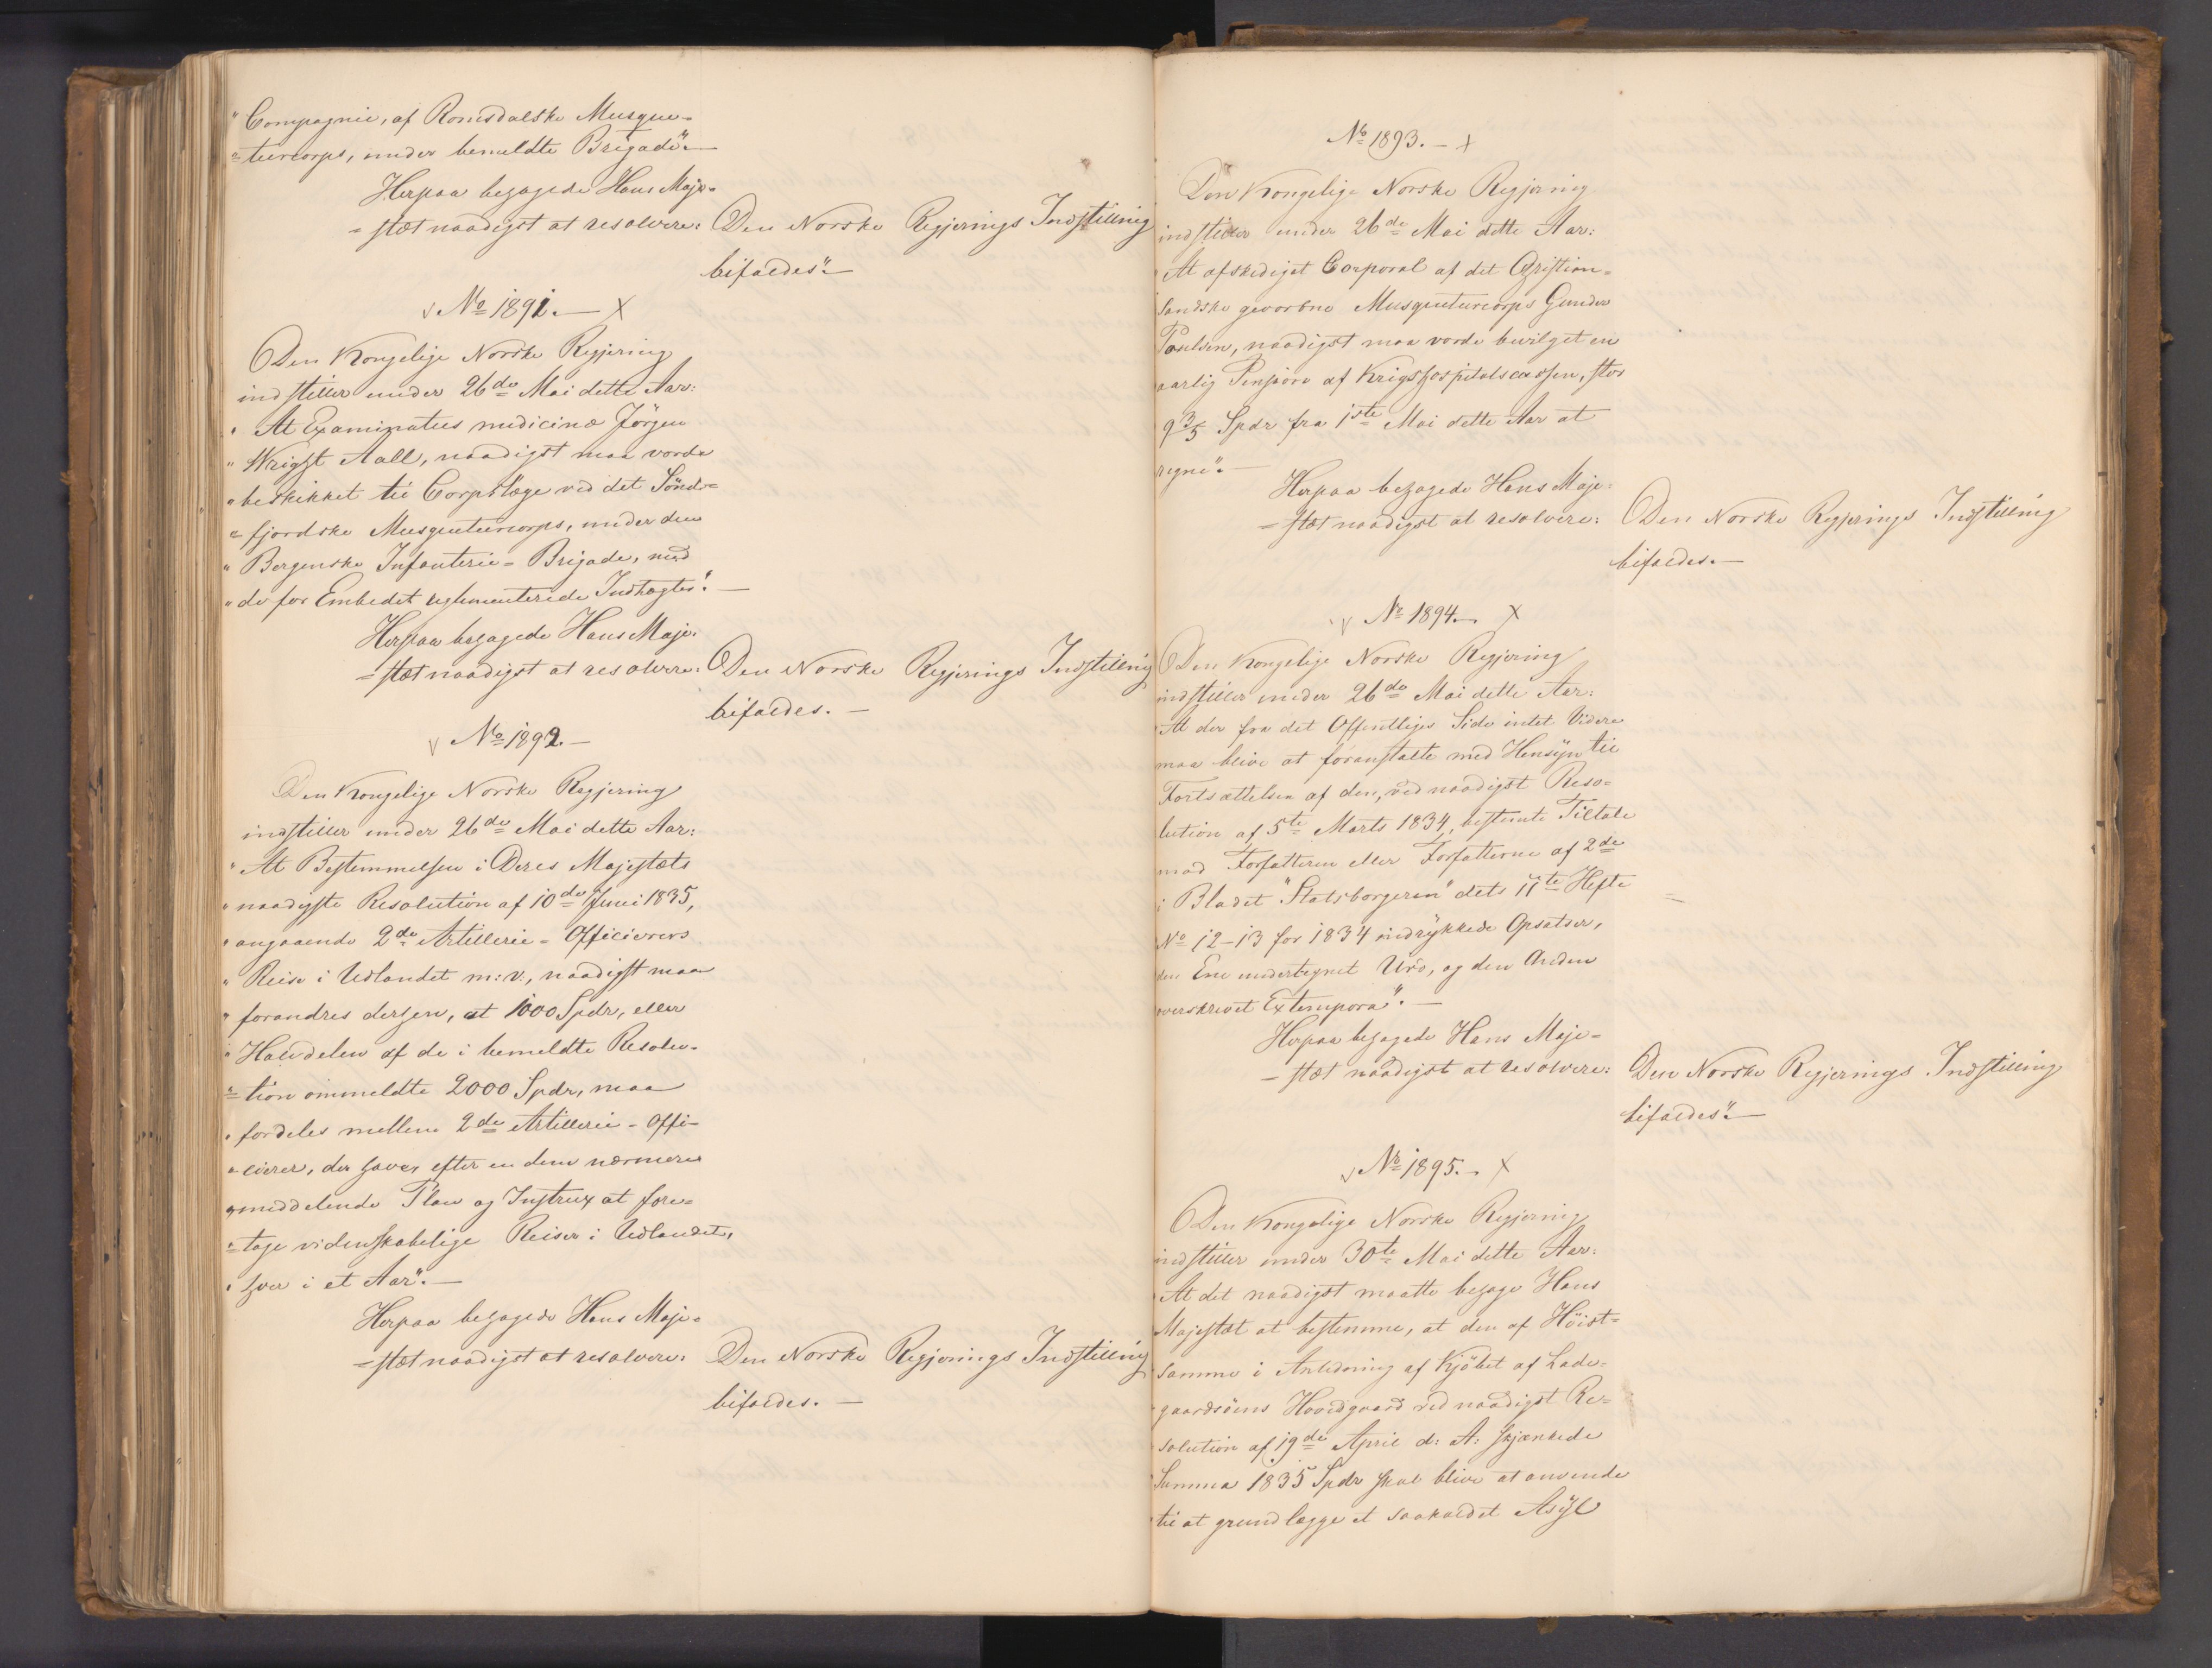 "Compagnie, af Romsdalske Musque-
"teercorps, under bemeldte Brigade".—
Herpaa behagede Hans Maje-
-stæt naadigst at resolvere: Den Norske Regjerings Indstilling
bifaldes".—
√ No 1891.— X
Den Kongelige Norske Regjering
indstiller under 26de Mai dette Aar:
"At Examinatus medicinæ Jörgen
"Wright Aall, naadigst maa vorde
"beskikket til Corpslæge ved det Sönd-
"fjordske Musqueteercorps, under den
"Bergenske Infanterie-Brigade, med
"de for Embedet reglementerede Indtægter".—
Herpaa behagede Hans Maje-
-stæt naadigst at resolvere: Den Norske Regjerings Indstilling
bifaldes.—
√ No 1892.—
Den Kongelige Norske Regjering
indstiller under 26de Mai dette Aar:
"At Bestemmelsen i Deres Majestæts
"naadigste Resolution af 10de Juni 1835,
"angaaende 2de Artillerie-Officierers
"Reise i Udlandet m: v:, naadigst maa
"forandres derhen, at 1000 Spdr, eller
"Halvdelen af de i bemeldte Resolu-
"tion ommeldte 2000 Spdr, maa
"fordeles mellem 2de Artillerie-Offi-
"cierer, der have, efter en dem nærmere
"meddelende Plan og Instrux at fore-
"tage videnskabelige Reiser i Udlandet,
"hver i et Aar".—
Herpaa behagede Hans Maje-
-stæt naadigst at resolvere: Den Norske Regjerings Indstilling
bifaldes.—
No 1893.— X
Den Kongelige Norske Regjering
indstiller under 26de Mai dette Aar:
"At afskediget Corporal af det Christian-
sandske gevorbne Musqueteercorps Gunder
Poulsen, naadigst maa vorde bevilget en
aarlig Pension af Krigshospitalscassen, stor
9 3/5 Spdr fra 1ste Mai dette Aar at
regne".—
Herpaa behagede Hans Maje-
-stæt naadigst at resolvere: Den Norske Regjerings Indstilling
bifaldes.—
√ No 1894.— X
Den Kongelige Norske Regjering
indstiller under 26de Mai dette Aar:
"At der fra det Offentliges Side intet Videre
maa blive at foranstalte med Hensyn til
Fortsættelsen af den, ved naadigst Reso-
lution af 5te Marts 1834, bestemte Tiltale
mod Forfatteren eller Forfatterne af 2de
i Bladet "Statsborgeren" dets 11te Hefte
No 12-13 for 1834 indrykkede Opsatser,
den Ene undertegnet Uro, og den Anden
overskrevet Extempora".—
Herpaa behagede Hans Maje-
-stæt naadigst at resolvere: Den Norske Regjerings Indstilling
bifaldes".—
√ No 1895.— X
Den Kongelige Norske Regjering
indstiller under 30te Mai dette Aar:
"At det naadigst maatte behage Hans
Majestæt at bestemme, at den af Höist-
samme i Anledning af Kjöbet af Lade-
gaardsöens Hovedgaard ved naadigst Re-
solution af 19de April d: A: skjænkede
Summa 1835 Spdr skal blive at anvende
til at grundlægge et saakaldet Asyl